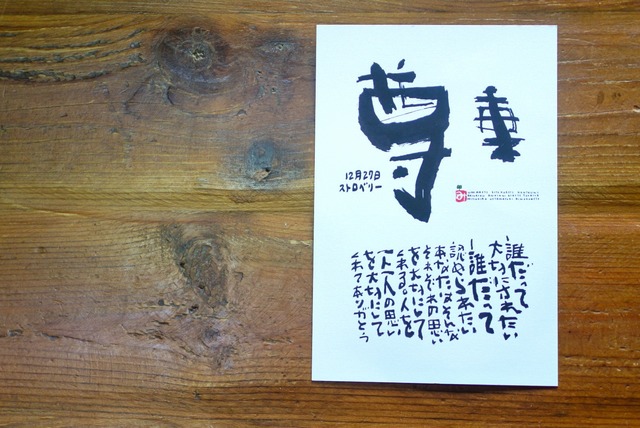 尊
12月27日
ストロベリー
み
誰だって
大切にされたい
誰だって
認められたい
あなたはそんな
それぞれの思い
を大切にして
くれる。人を
一人一人の思い
を大切にして
くれてありがとう